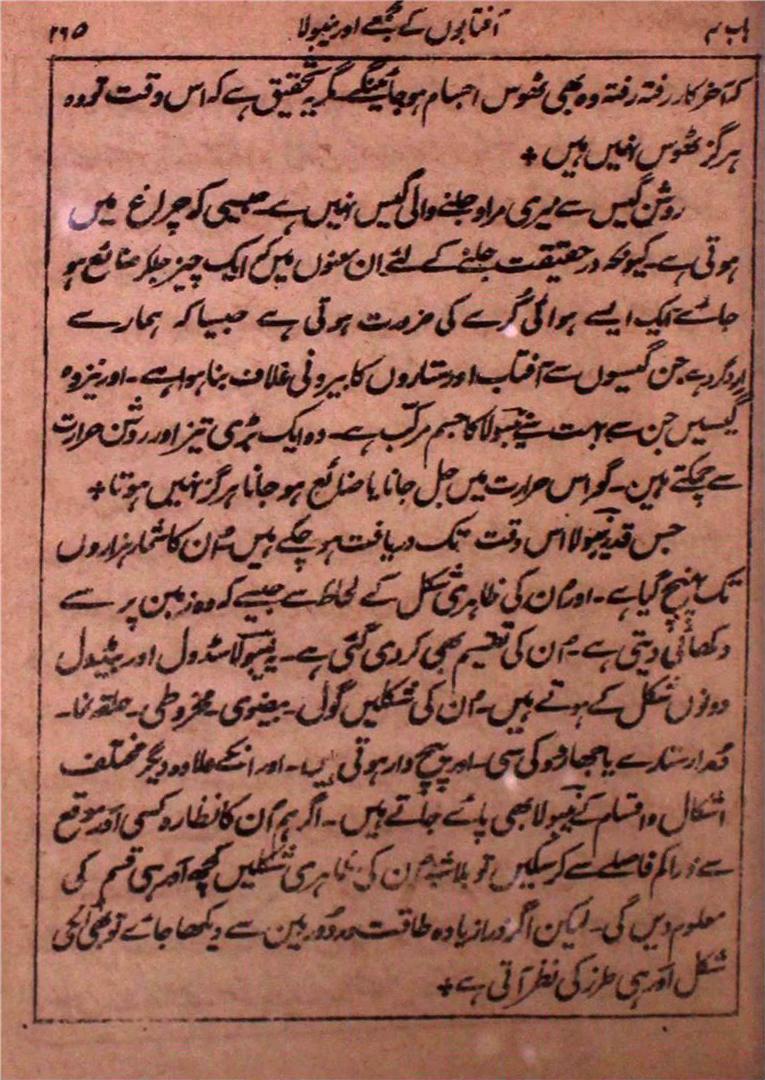 باب ۴ آفتابوں کے گچھے اور نیبولا ۲۶۵
کہ آخرکار رفتہ رفتہ وہ بھی ٹھوس اجسام ہو جائینگے۔ مگر یہ تحقیق ہے کہ اس وقت تو وہ
ہرگز ٹھوس نہیں ہیں +
روشن گیس سے میری مراد جلنے والی گیس نہیں ہے۔ جیسی کہ چراغ میں
ہوتی ہے۔ کیونکہ درحقیقت جلنے کے لئے ان معنوں میں کہ ایک چیز جلکر ضائع ہو
جائے ایک ایسے ہوائی کُرے کی ضرورت ہوتی ہے جیسا کہ ہمارے
اردگرد ہے جن گیسوں سے آفتاب اور ستاروں کا بیرونی غلاف بنا ہوا ہے۔ اور نیز وہ
گیسیں جن سے بہت سے نیبولا کا جسم مرکّب ہے۔ وہ ایک بڑی تیز اور روشن حرارت
سے چمکتے ہیں۔ گو اس حرارت میں جل جانا یا ضائع ہو جانا ہرگز نہیں ہوتا +
جس قدر نیبولا اس وقت تک دریافت ہو چکے ہیں اُن کا شمار ہزاروں
تک پہنچ گیا ہے۔ اور اُن کی ظاہری شکل کے لحاظ سے جیسے کہ وہ زمین پر سے
دکھائی دیتی ہے۔ اُن کی تقسیم بھی کر دی گئی ہے۔ یہ نیبولا سڈول اور بیڈول
دونوں شکل کے ہوتے ہیں۔ اُن کی شکلیں گول۔ بیضوی۔ مخروطی۔ حلقہ نما۔
دُمدار ستارے یا جھاڑو کی سی۔ اور پیچ دار ہوتی ہیں۔ اور انکے علاوہ دیگر مختلف
اشکال و اقسام کے نیبولا بھی پائے جاتے ہیں۔ اگر ہم اُن کا نظارہ کسی اَور موقع
سے ذرا کم فاصلے سے کر سکیں تو بلاشبہ اُن کی ظاہری شکلیں کچھ اَور ہی قسم کی
معلوم دیں گی۔ لیکن اگر ذرا زیادہ طاقت ور دُوربین سے دیکھا جائے تو بھی اُنکی
شکل اَور ہی طرز کی نظر آتی ہے +